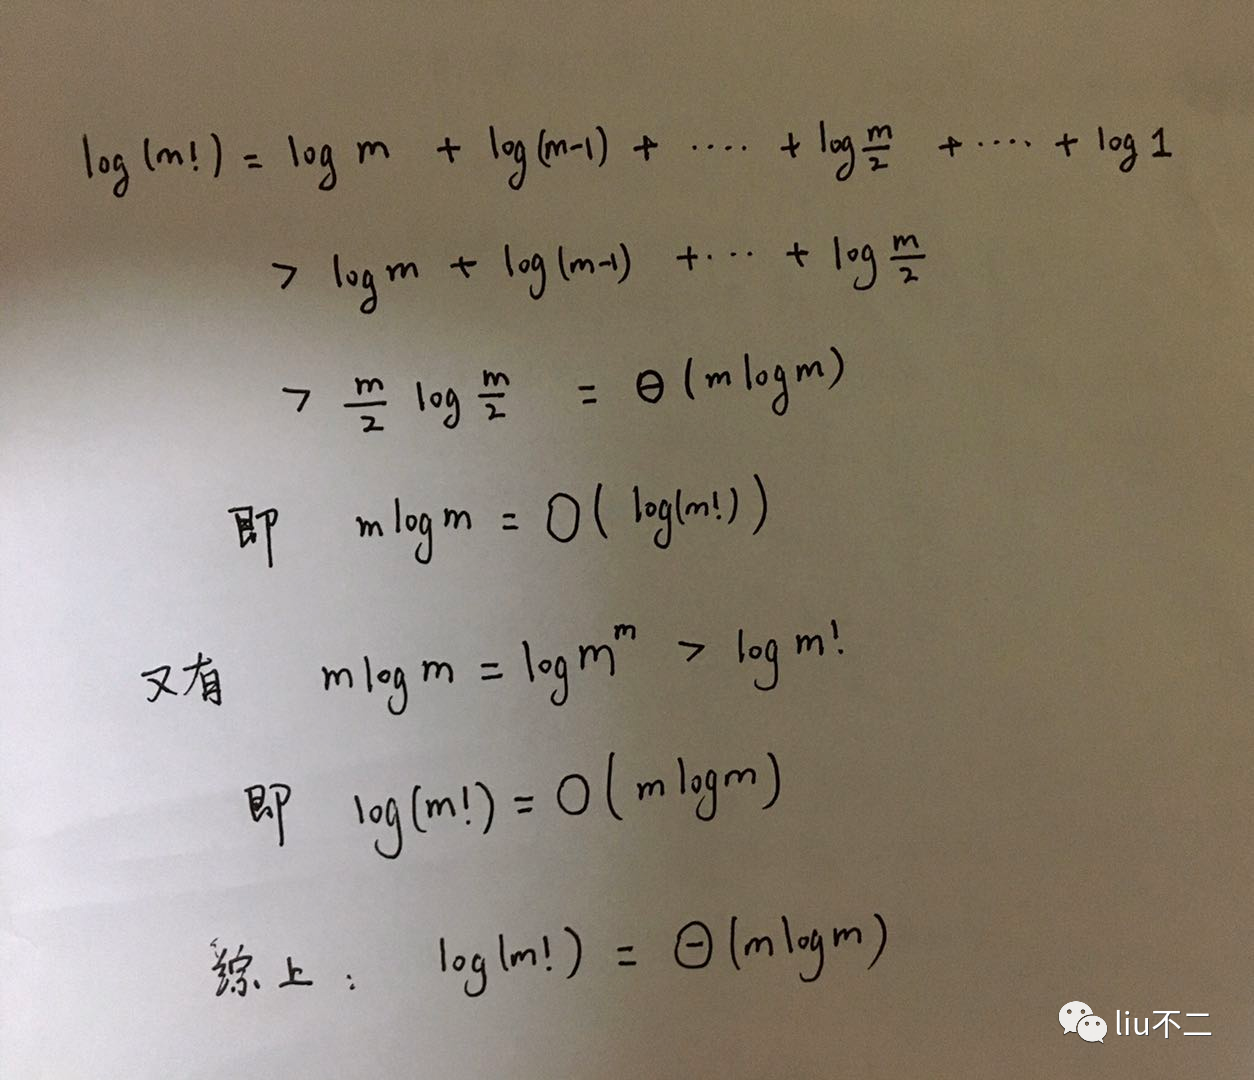 log(m!) = log m + log(m-1) + ···· + log m/2 + ···· + log 1
> log m + log(m-1) + ··· + log m/2
> m/2 log m/2 = Θ(m log m)
即 m log m = O(log(m!))
又有 m log m = log m^m > log m!
即 log(m!) = O(m log m)
综上: log(m!) = Θ(m log m)
liu不二